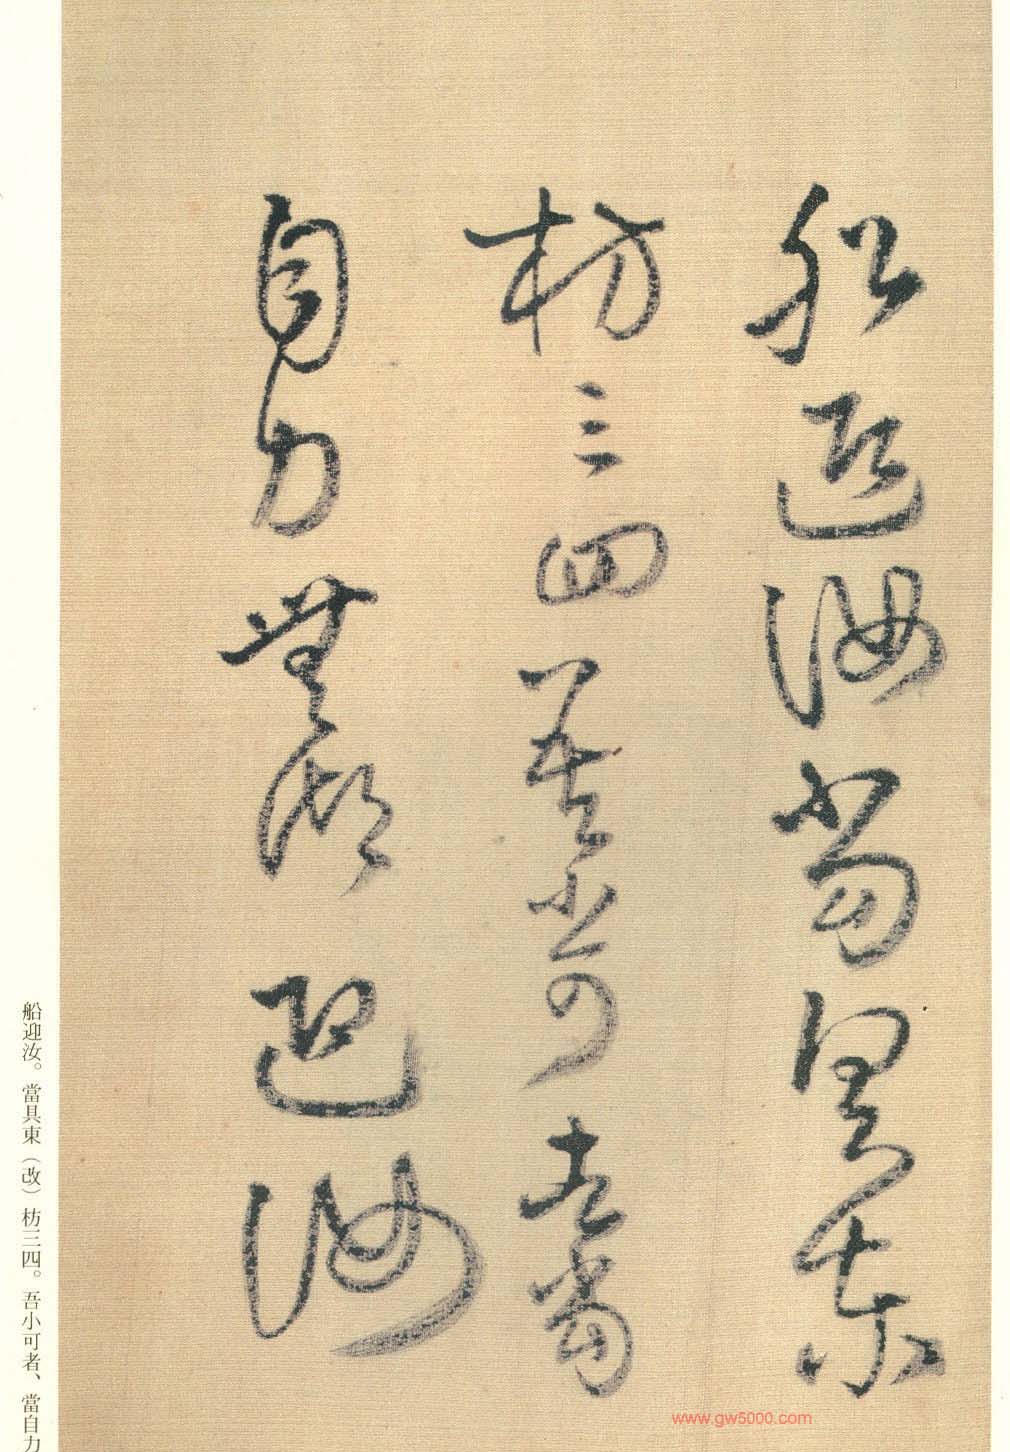 船迎汝當具東
枋三四吾小可者當
自力無湖迎汝
船迎汝。當具東（改）枋三四。吾小可者、當自力
www.gw5000.com